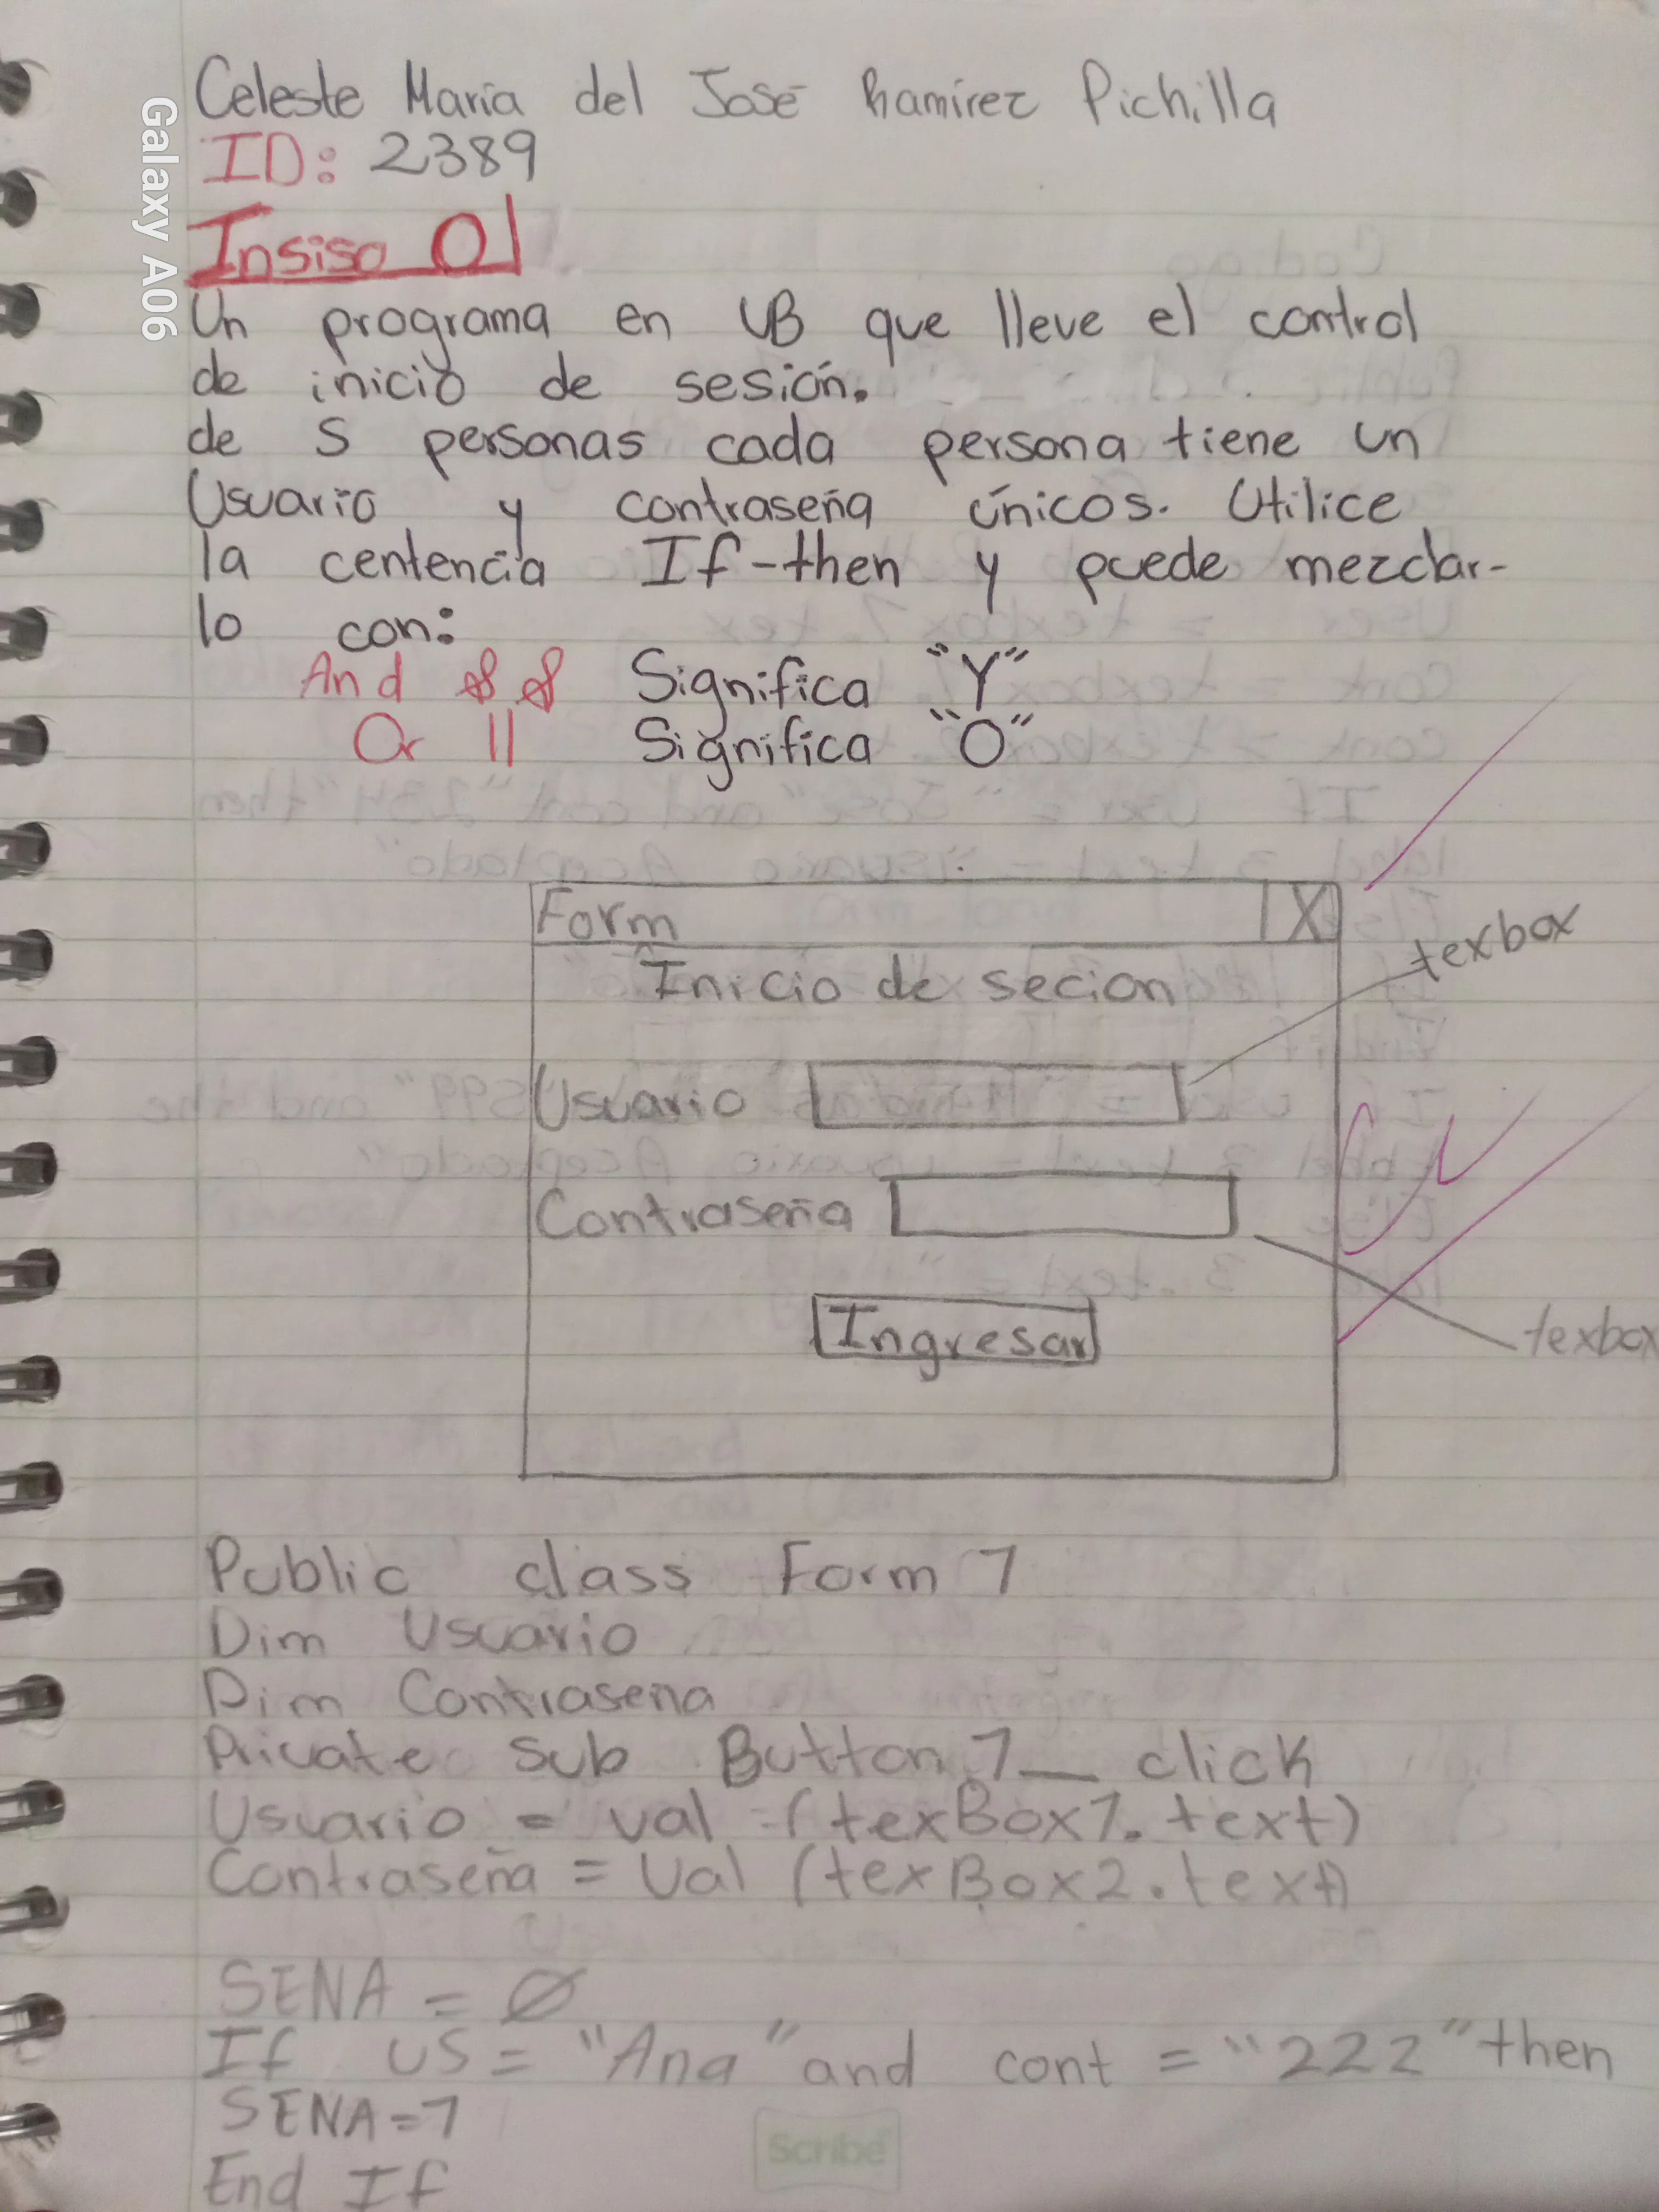 Celeste María del José Ramírez Pichilla
ID: 2389
Insiso 01
Un programa en VB que lleve el control
de inicio de sesión.
de 5 personas cada persona tiene un
Usuario y contraseña únicos. Utilice
la centencia If-then y puede mezclar-
lo con:
And && Significa "Y"
Or || Significa "O"
Form X
Inicio de secion
texbox
Usuario
Contraseña
Ingresar
texbox
Public class Form 1
Dim Usuario
Dim Contrasena
Private Sub Button 1_ click
Usuario = val (texBox1.text)
Contraseña = Val (texBox2.text)
SENA = Ø
If US = "Ana" and cont = "222" then
SENA=1
End If
Scribe
Galaxy A06